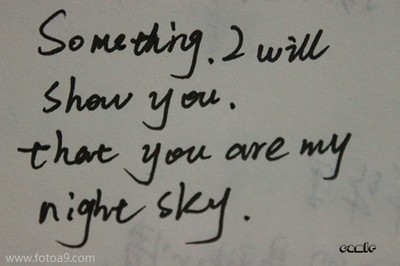 Something. I will
show you.
that you are my
night sky.
comic
www.fotoa9.com